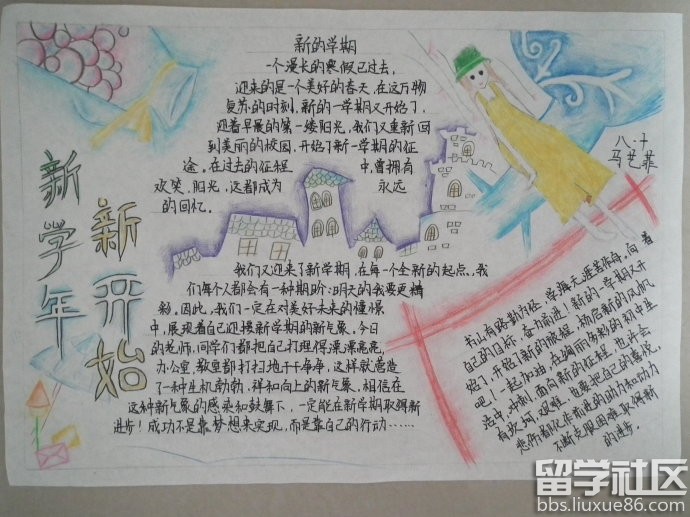 新学年
新开始
新的学期
一个漫长的寒假已过去,
迎来的是一个美好的春天,在这万物
复苏的时刻,新的一学期又开始了,
迎着早晨的第一缕阳光,我们又重新回
到美丽的校园,开始了新一学期的征
途,在过去的征程中,曾拥有
欢笑、阳光,这都成为永远
的回忆。
我们又迎来了新学期,在每一个全新的起点,我
们每个人都会有一种期盼:明天的我要更精
彩,因此,我们一定在对美好未来的憧憬
中,展现着自己迎接新学期的新气象,今日
的老师,同学们都把自己打理得漂漂亮亮,
办公室、教室都打扫地干干净净,这样就营造
了一种生机勃勃,祥和向上的新气象,相信在
这种新气象的感染和鼓舞下,一定能在新学期取得新
进步!成功不是靠梦想来实现,而是靠自己的行动……
八.十
马艺菲
书山有路勤为径,学海无涯苦作舟,向着
自己的目标,奋力前进!新的一学期又开
始了,开启了新的旅程,扬起新的风帆
吧!一起加油,在绚丽多彩的初中生
活中,冲刺,面向新的征程,也许会
有坎坷、艰难,也要把自己的喜悦,
悲伤都化作前进的动力和动力
不断克服困难,取得新
的进步。
留学社区
bbs.liuxue86.com